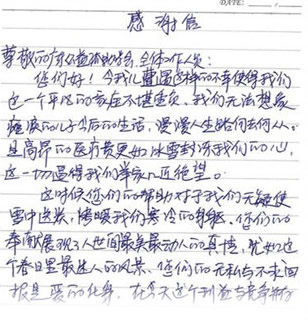 DATE:
感谢信
尊敬的 全体工作人员:
您们好!今我儿遭遇这样的不幸使得我们
这一个平凡的家庭不堪重负。我们无法想象
瘫痪的儿子今后的生活,漫漫人生路何去何从。
是高昂的医疗费更如冰雪封冻我们的心,
这一切逼得我们举家几近绝望。
这时候您们的帮助对于我们无疑是
雪中送炭,烤暖我们寒冷的身躯。您们的
奉献展现了人世间最美最动人的真情,犹如这
个春日里最迷人的风景。您们的无私与不求回
报是爱的化身。在今天这个利益与竞争并存